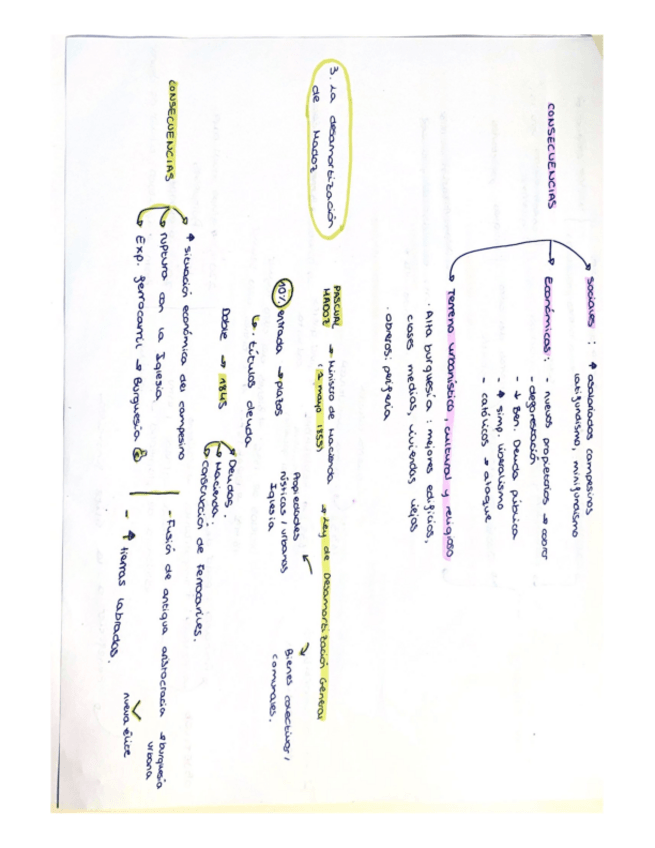 CONSECUENCIAS
Sociales : ↑ asalariados campesinos,
latifundismo, minifundismo
Económicas : - nuevos propietarios →
- deforestación
- ↓ Ben. Deuda pública
- ↑ simp. liberalismo
- católicos → ataque
Terreno urbanístico, cultural y religioso
· Alta burguesía : mejores edificios,
clases medias, viviendas viejas
· obreros: periferia
3. La desamortización
de Madoz
PASCUAL
MADOZ → Ministro de Hacienda → Ley de Desamortización General
(1 mayo 1855)
Propiedades
rústicas / urbanas
Iglesia
Bienes colectivos /
comunales.
10% entrada → plazos
↳ títulos deuda
Doble → 1845
Deudas.
Hacienda.
construcción de ferrocarriles.
CONSECUENCIAS
↑ situación económica del campesino
ruptura con la Iglesia
Exp. ferrocarril → Burguesía
- Fusión de antigua aristocracia → burguesía
urbana
nueva élite
- ↑ tierras labradas.